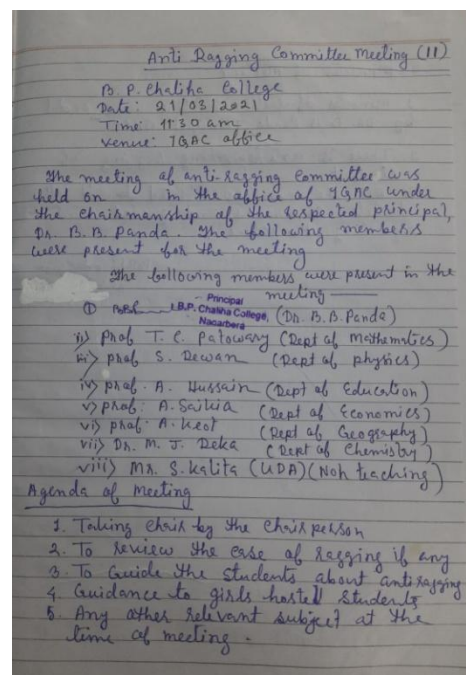 Anti Ragging Committee Meeting (11)
B. P. Chaliha College
Date: 21/03/2021
Time: 11:30 am
Venue: IQAC office
The meeting of anti-ragging committee was
held on in the office of IQAC under
the chairmanship of the respected principal,
Dr. B. B. Panda. The following members
were present for the meeting
The following members were present in the
meeting
Principal
① B.P. Chaliha College, (Dr. B. B. Panda)
Nagarbera
ii) Prof T. C. Patowary (Dept of Mathematics)
iii) Prof S. Dewan (Dept of physics)
iv) Prof. A. Hussain (Dept of Education)
v) Prof. A. Saikia (Dept of Economics)
vi) Prof. A. Keot (Dept of Geography)
vii) Dr. M. J. Deka (Dept of Chemistry)
viii) Mr. S. Kalita (UDA) (Noh teaching)
Agenda of Meeting
1. Taking chair by the Chairperson
2. To review the case of ragging if any
3. To Guide the students about antiragging
4. Guidance to girls hostel students
5. Any other relevant subject at the
time of meeting.